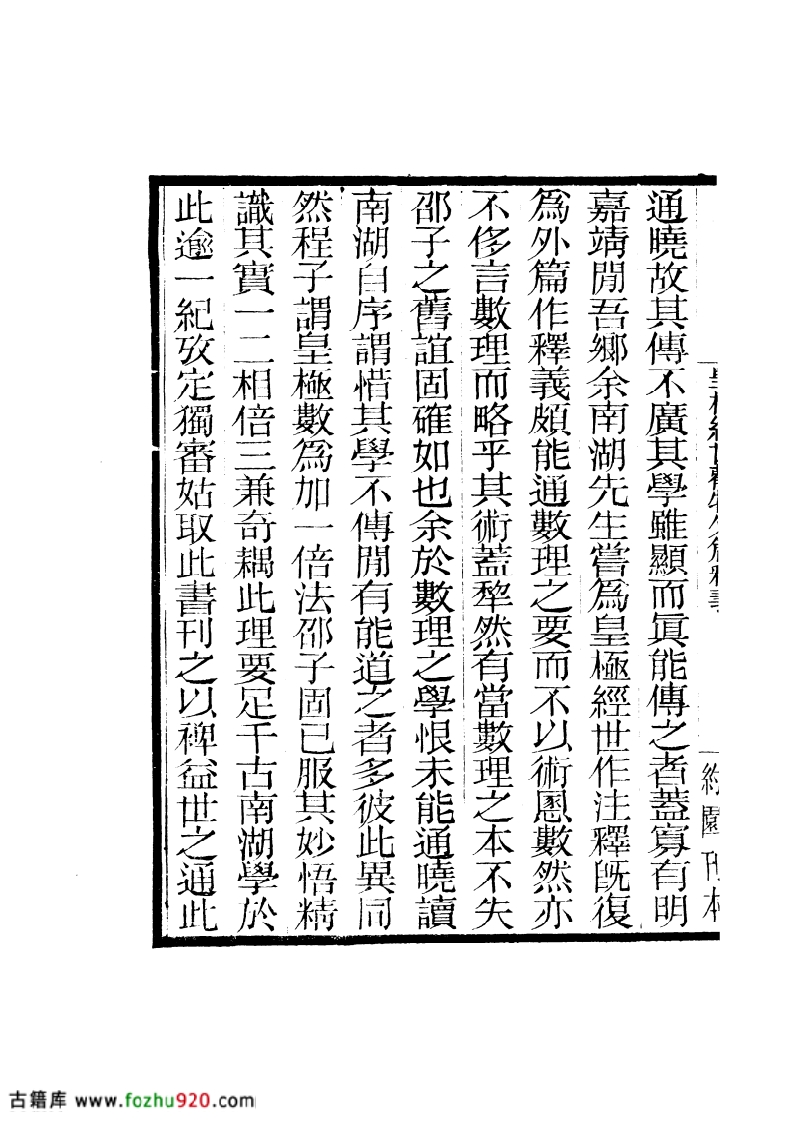 通曉故其傳不廣其學雖顯而眞能傳之者蓋寡有明
嘉靖閒吾鄉余南湖先生嘗爲皇極經世作注釋旣復
爲外篇作釋義頗能通數理之要而不以術圂數然亦
不侈言數理而略乎其術蓋犂然有當數理之本不失
邵子之舊誼固確如也余於數理之學恨未能通曉讀
南湖自序謂惜其學不傳閒有能道之者多彼此異同
然程子謂皇極數爲加一倍法邵子固已服其妙悟精
識其實一二相倍三兼奇耦此理要足千古南湖學於
此逾一紀攷定獨審姑取此書刊之以裨益世之通此
約園刊本
古籍库 www.fozhu920.com